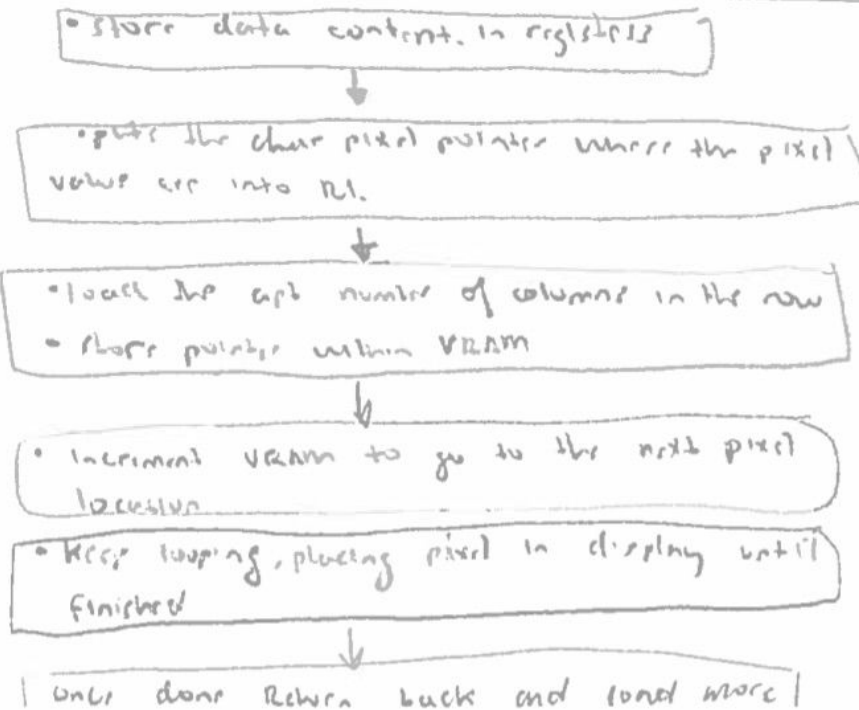 • Store data content. in registers
• puts the char pixel pointer where the pixel
value are into R1.
• load the apt number of columns in the row
• store pointer within VRAM
• Incriment VRAM to go to the next pixel
location
• Keep looping, placing pixel in display until
finished
once done Return back and load more